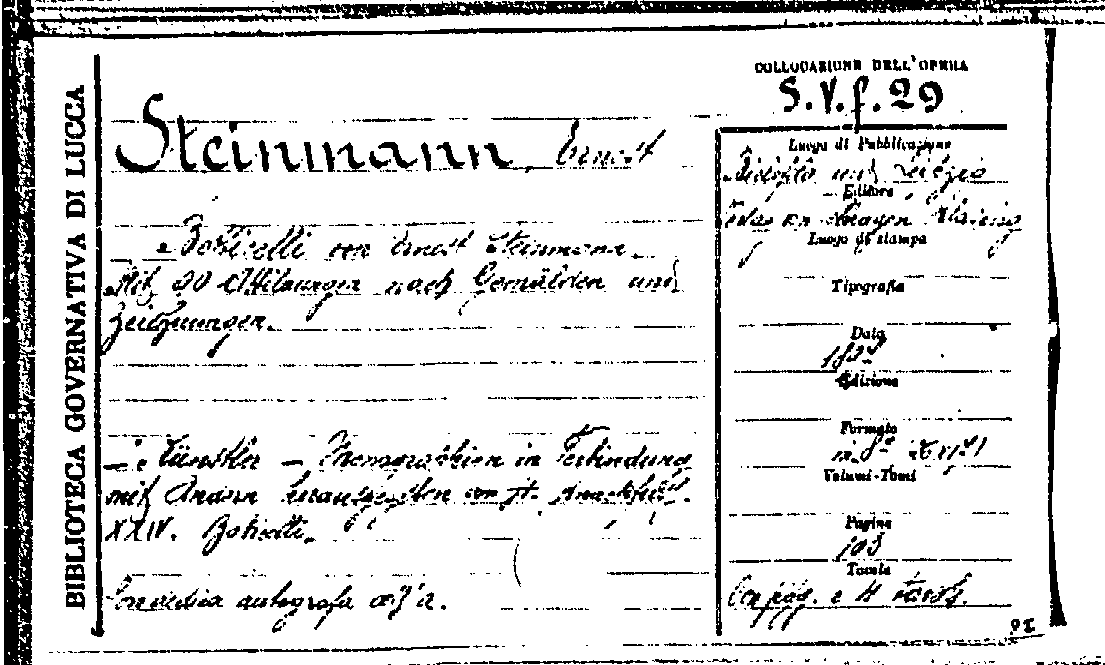 BIBLIOTECA GOVERNATIVA DI LUCCA
COLLOCAZIONE DELL'OPERA
S. V. f. 29
Steinmann, Ernest
Botticelli von Ernest Steinmann.
Mit 90 Abbildungen nach Gemälden und
Zeichnungen.
Künstler - Monographien in Verbindung
mit Andern herausgegeben von H. Knackfuss.
XXIV. Botticelli.
autografa
Luogo di Pubblicazione
Bielefeld und Leipzig
Editore
Velhagen Klasing
Luogo di stampa
Tipografia
Data
Edizione
Formato
in 8°
Volumi-Tomi
Pagine
Tavole
e